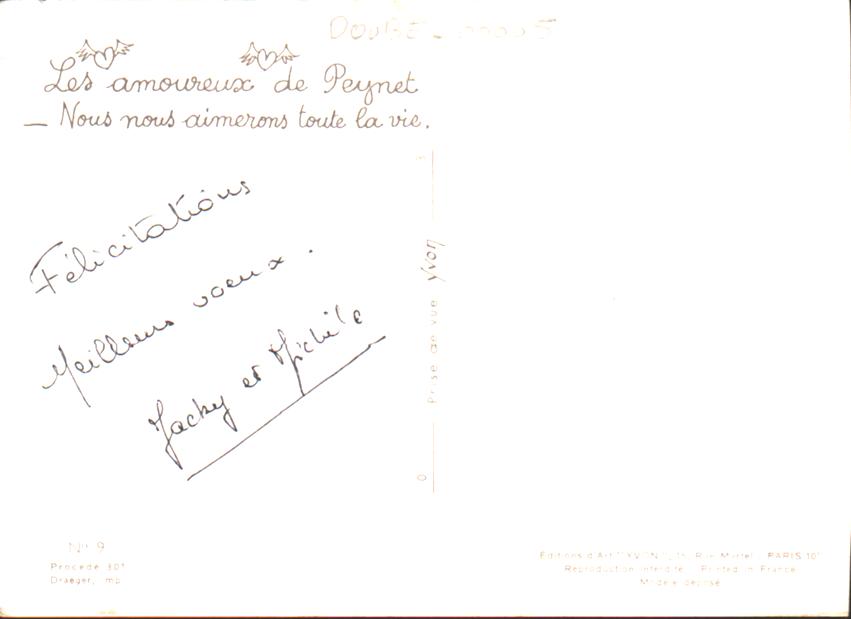 Les amoureux de Peynet
— Nous nous aimerons toute la vie.
Félicitations
Meilleurs voeux.
Jacky et Michèle
Prise de vue Yvon
N° 9
Procédé 301
Draeger, imp.
Editions d'Art "YVON", 15, Rue Martel - PARIS 10e
Reproduction interdite - Printed in France
Modèle déposé